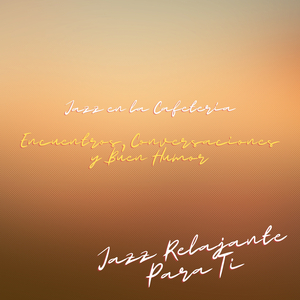 Jazz en la Cafetería
Encuentros, Conversaciones
y Buen Humor
Jazz Relajante
Para Ti